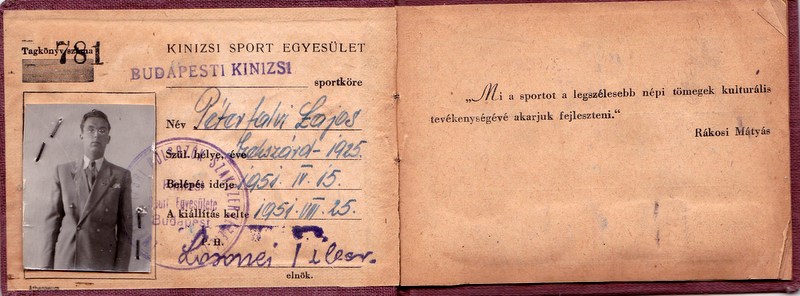 Tagkönyv száma
781
KINIZSI SPORT EGYESÜLET
BUDAPESTI KINIZSI
sportköre
Név Péterfalvi Lajos
Szül. helye, éve Szekszárd 1925.
Belépés ideje 1951. IV. 15.
A kiállítás kelte 1951. VIII. 25.
P. H.
Tibor
elnök.
Budapest
„Mi a sportot a legszélesebb népi tömegek kulturális
tevékenységévé akarjuk fejleszteni.“
Rákosi Mátyás